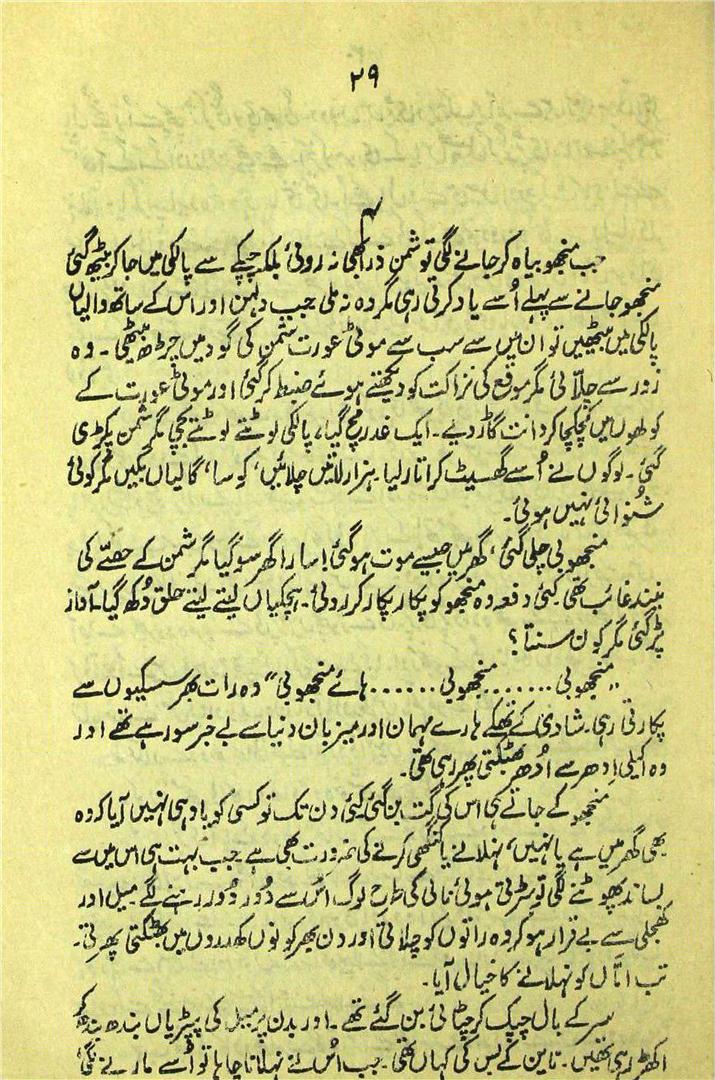 ۲۹
۴
جب منجھو بیاہ کر جانے لگی تو شمن ذرا بھی نہ روئی بلکہ چپکے سے پالکی میں جا کر بیٹھ گئی
منجھو جانے سے پہلے اُسے یاد کرتی رہی مگر وہ نہ ملی جب دلہن اور اس کے ساتھ والیاں
پالکی میں بیٹھیں تو ان میں سے سب سے موٹی عورت شمن کی گود میں چڑھ بیٹھی۔ وہ
زور سے چلّائی مگر موقع کی نزاکت کو دیکھتے ہوئے ضبط کر گئی اور موٹی عورت کے
کولھوں میں کچکچا کر دانت گاڑ دیے۔ ایک غدر مچ گیا، پالکی لوٹتے لوٹتے بچی مگر شمن پکڑی
گئی۔ لوگوں نے اُسے گھسیٹ کر اتار لیا۔ ہزار لاتیں چلائیں، کوسا، گالیاں بکیں مگر کوئی
شُنوائی نہیں ہوئی۔
منجھو بی چلی گئی، گھر میں جیسے موت ہو گئی! سارا گھر سو گیا مگر شمن کے حصّے کی
نیند غائب تھی۔ کئی دفعہ وہ منجھو کو پکار پکار کر روئی۔ ہچکیاں لیتے لیتے حلق دُکھ گیا۔ آواز
پڑ گئی مگر کون سنتا؟
"منجھو بی ....... منجھو بی ...... ہائے منجھو بی" وہ رات بھر سسکیوں سے
پکارتی رہی۔ شادی کے تھکے ہارے مہمان اور میزبان دنیا سے بے خبر سو رہے تھے اور
وہ اکیلی اِدھر سے اُدھر بھٹکتی پھر رہی تھی۔
منجھو کے جاتے ہی اس کی گت بن گئی۔ کئی دن تک تو کسی کو یاد ہی نہیں آیا کہ وہ
بھی گھر میں ہے یا نہیں، نہلانے یا کنگھی کرنے کی ضرورت بھی ہے جب بہت ہی اس میں سے
بساند پھوٹنے لگی تو سڑتی ہوئی نالی کی طرح لوگ اُس سے دُور دُور رہنے لگے میل اور
کھجلی سے بے قرار ہو کر وہ راتوں کو چلاتی اور دن بھر کونوں کھدروں میں بھٹکتی پھرتی۔
تب امّاں کو نہلانے کا خیال آیا۔
سر کے بال چپک کر چٹائی بن گئے تھے۔ اور بدن پر میل کی پپڑیاں بندھ بندھ کے
اکھڑ رہی تھیں۔ تاین کے بس کی کہاں تھی۔ جب اُس نے نہلانا چاہا تو اُسے مارنے لگی